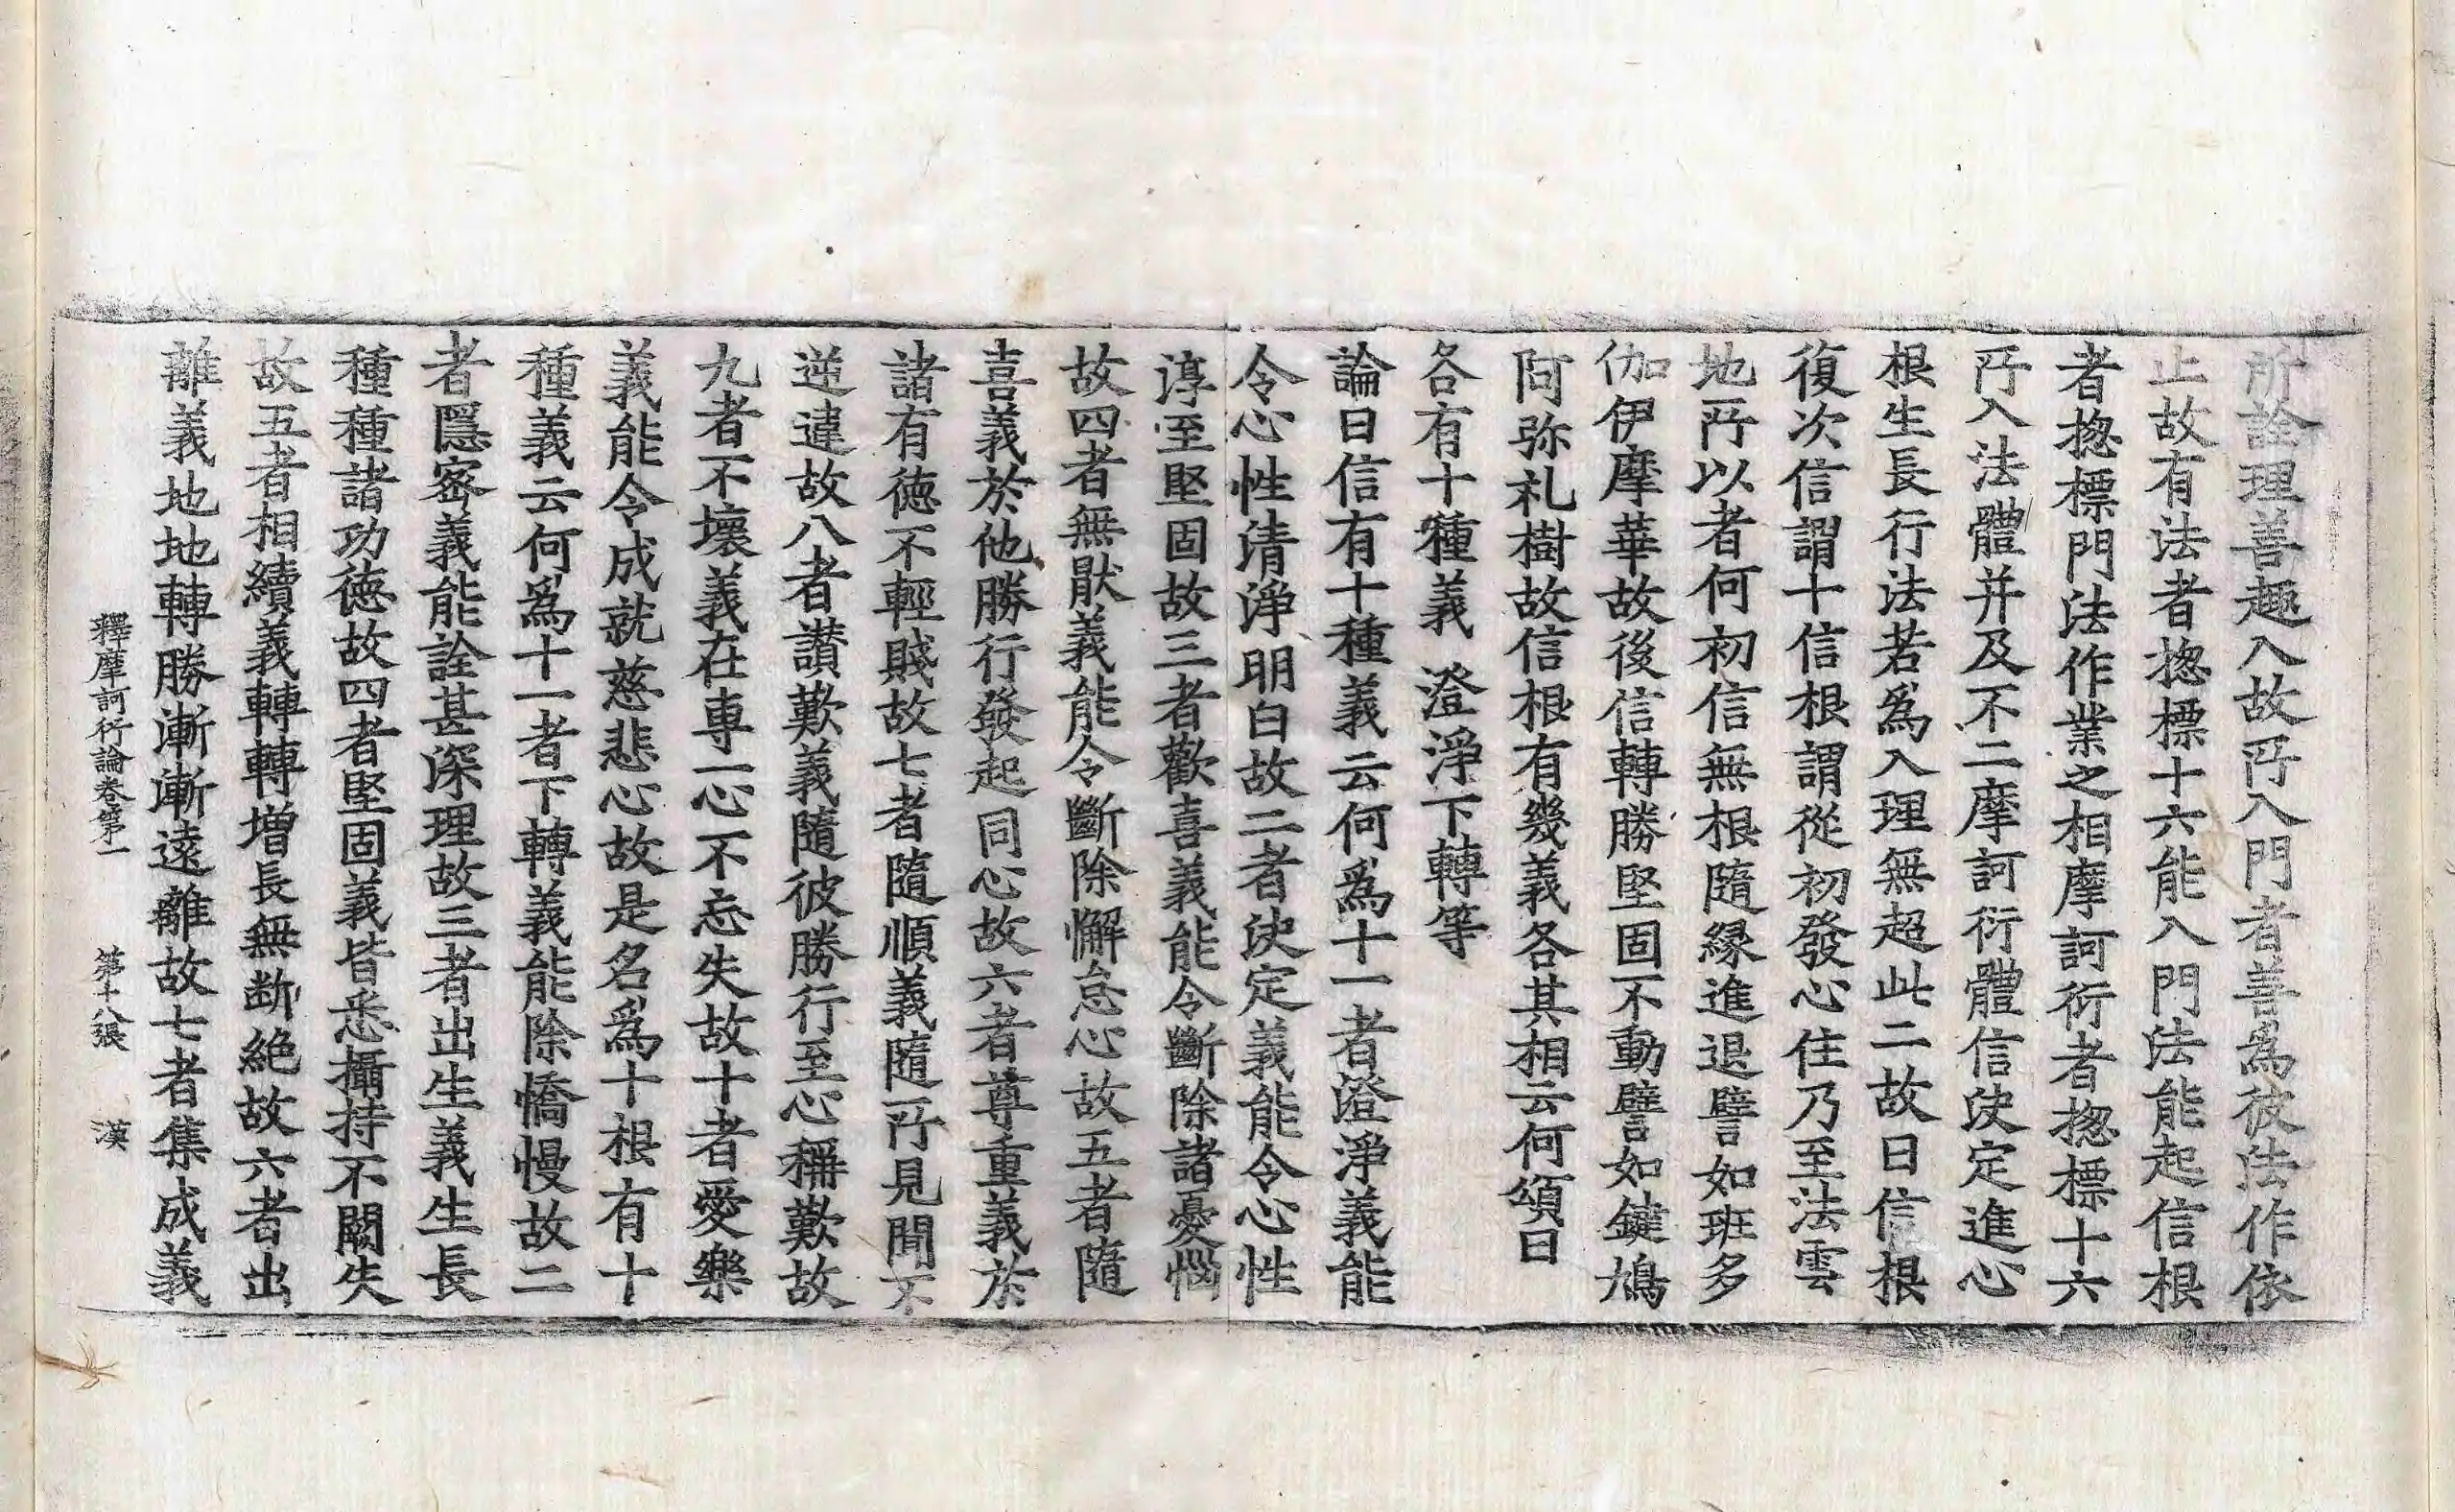 所詮理善趣入故所入門者善爲彼法作依
止故有法者揔標十六能入門法能起信根
者揔標門法作業之相摩訶衍者揔標十六
所入法體并及不二摩訶衍體信決定進心
根生長行法若爲入理無超此二故曰信根
復次信謂十信根謂從初發心住乃至法雲
地所以者何初信無根隨縁進退譬如班多
伽伊摩華故後信轉勝堅固不動譬如鍵鳩
阿弥礼樹故信根有幾義各其相云何頌曰
各有十種義　澄淨下轉等
論曰信有十種義云何爲十一者澄淨義能
令心性清淨明白故二者決定義能令心性
淳至堅固故三者歡喜義能令斷除諸憂惱
故四者無猒義能令斷除懈怠心故五者隨
喜義於他勝行發起同心故六者尊重義於
諸有徳不輕賤故七者隨順義隨所見聞不
逆違故八者讃歎義隨彼勝行至心稱歎故
九者不壞義在專一心不忘失故十者愛樂
義能令成就慈悲心故是名爲十根有十
種義云何爲十一者下轉義能除憍慢故二
者隱密義能詮甚深理故三者出生義生長
種種諸功徳故四者堅固義皆悉攝持不闕失
故五者相續義轉轉増長無断絶故六者出
離義地地轉勝漸漸遠離故七者集成義
釋摩訶衍論卷第一　第十八張　漢